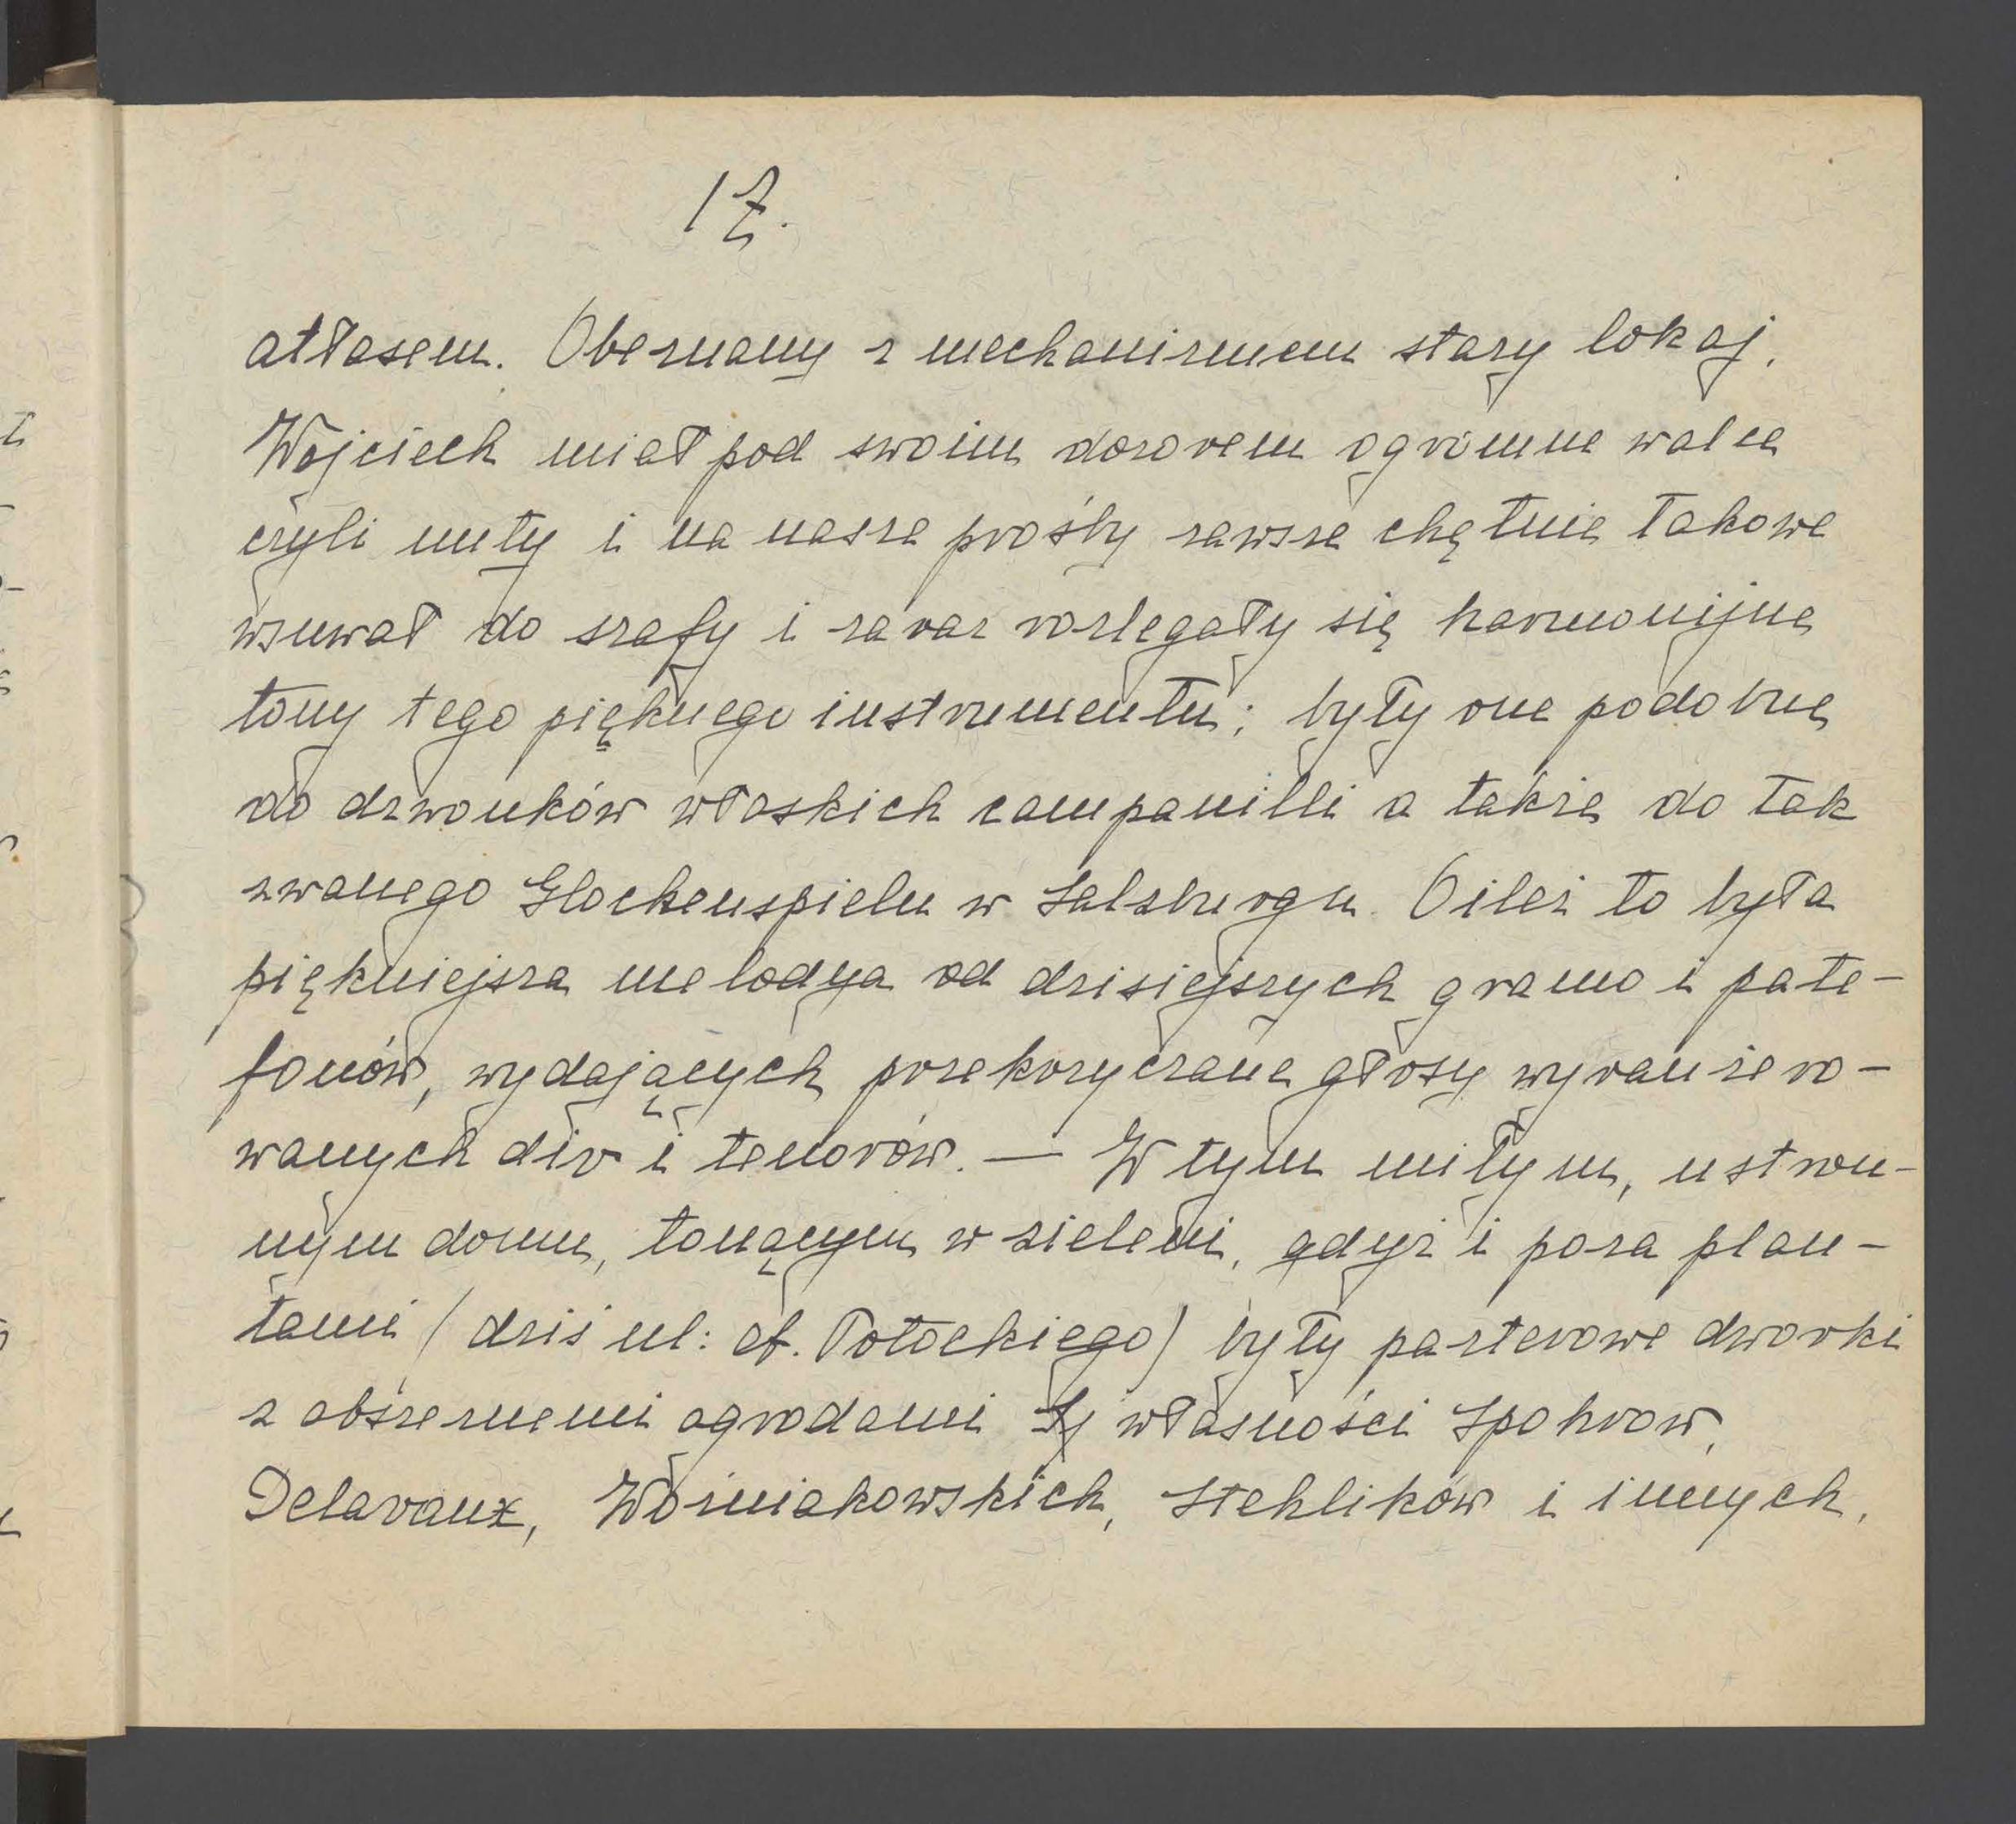 17.
atłasem. Obeznany z mechanizmem stary lokaj,
Wojciech miał pod swoim dozorem ogromne walce
czyli nuty i na nasze prośby zawsze chętnie takowe
wsuwał do szafy i zaraz rozlegały się harmonijne
tony tego pięknego instrumentu; były one podobne
do dzwonków włoskich campanilli a także do tak
zwanego Glockenspielu w Salzburgu. O ileż to była
piękniejsza melodya od dzisiejszych gramo i pate-
fonów, wydających przekrzyczane głosy wyranżero-
wanych div i tenorów. — W tym miłym, ustron-
nym domu, tonącym w zieleni, gdyż i poza plan-
tami (dziś ul: A. Potockiego) były parterowe dworki
z obszernemi ogrodami własności Spohrow,
Delavaux, Woźniakowskich, Stehlików i innych,